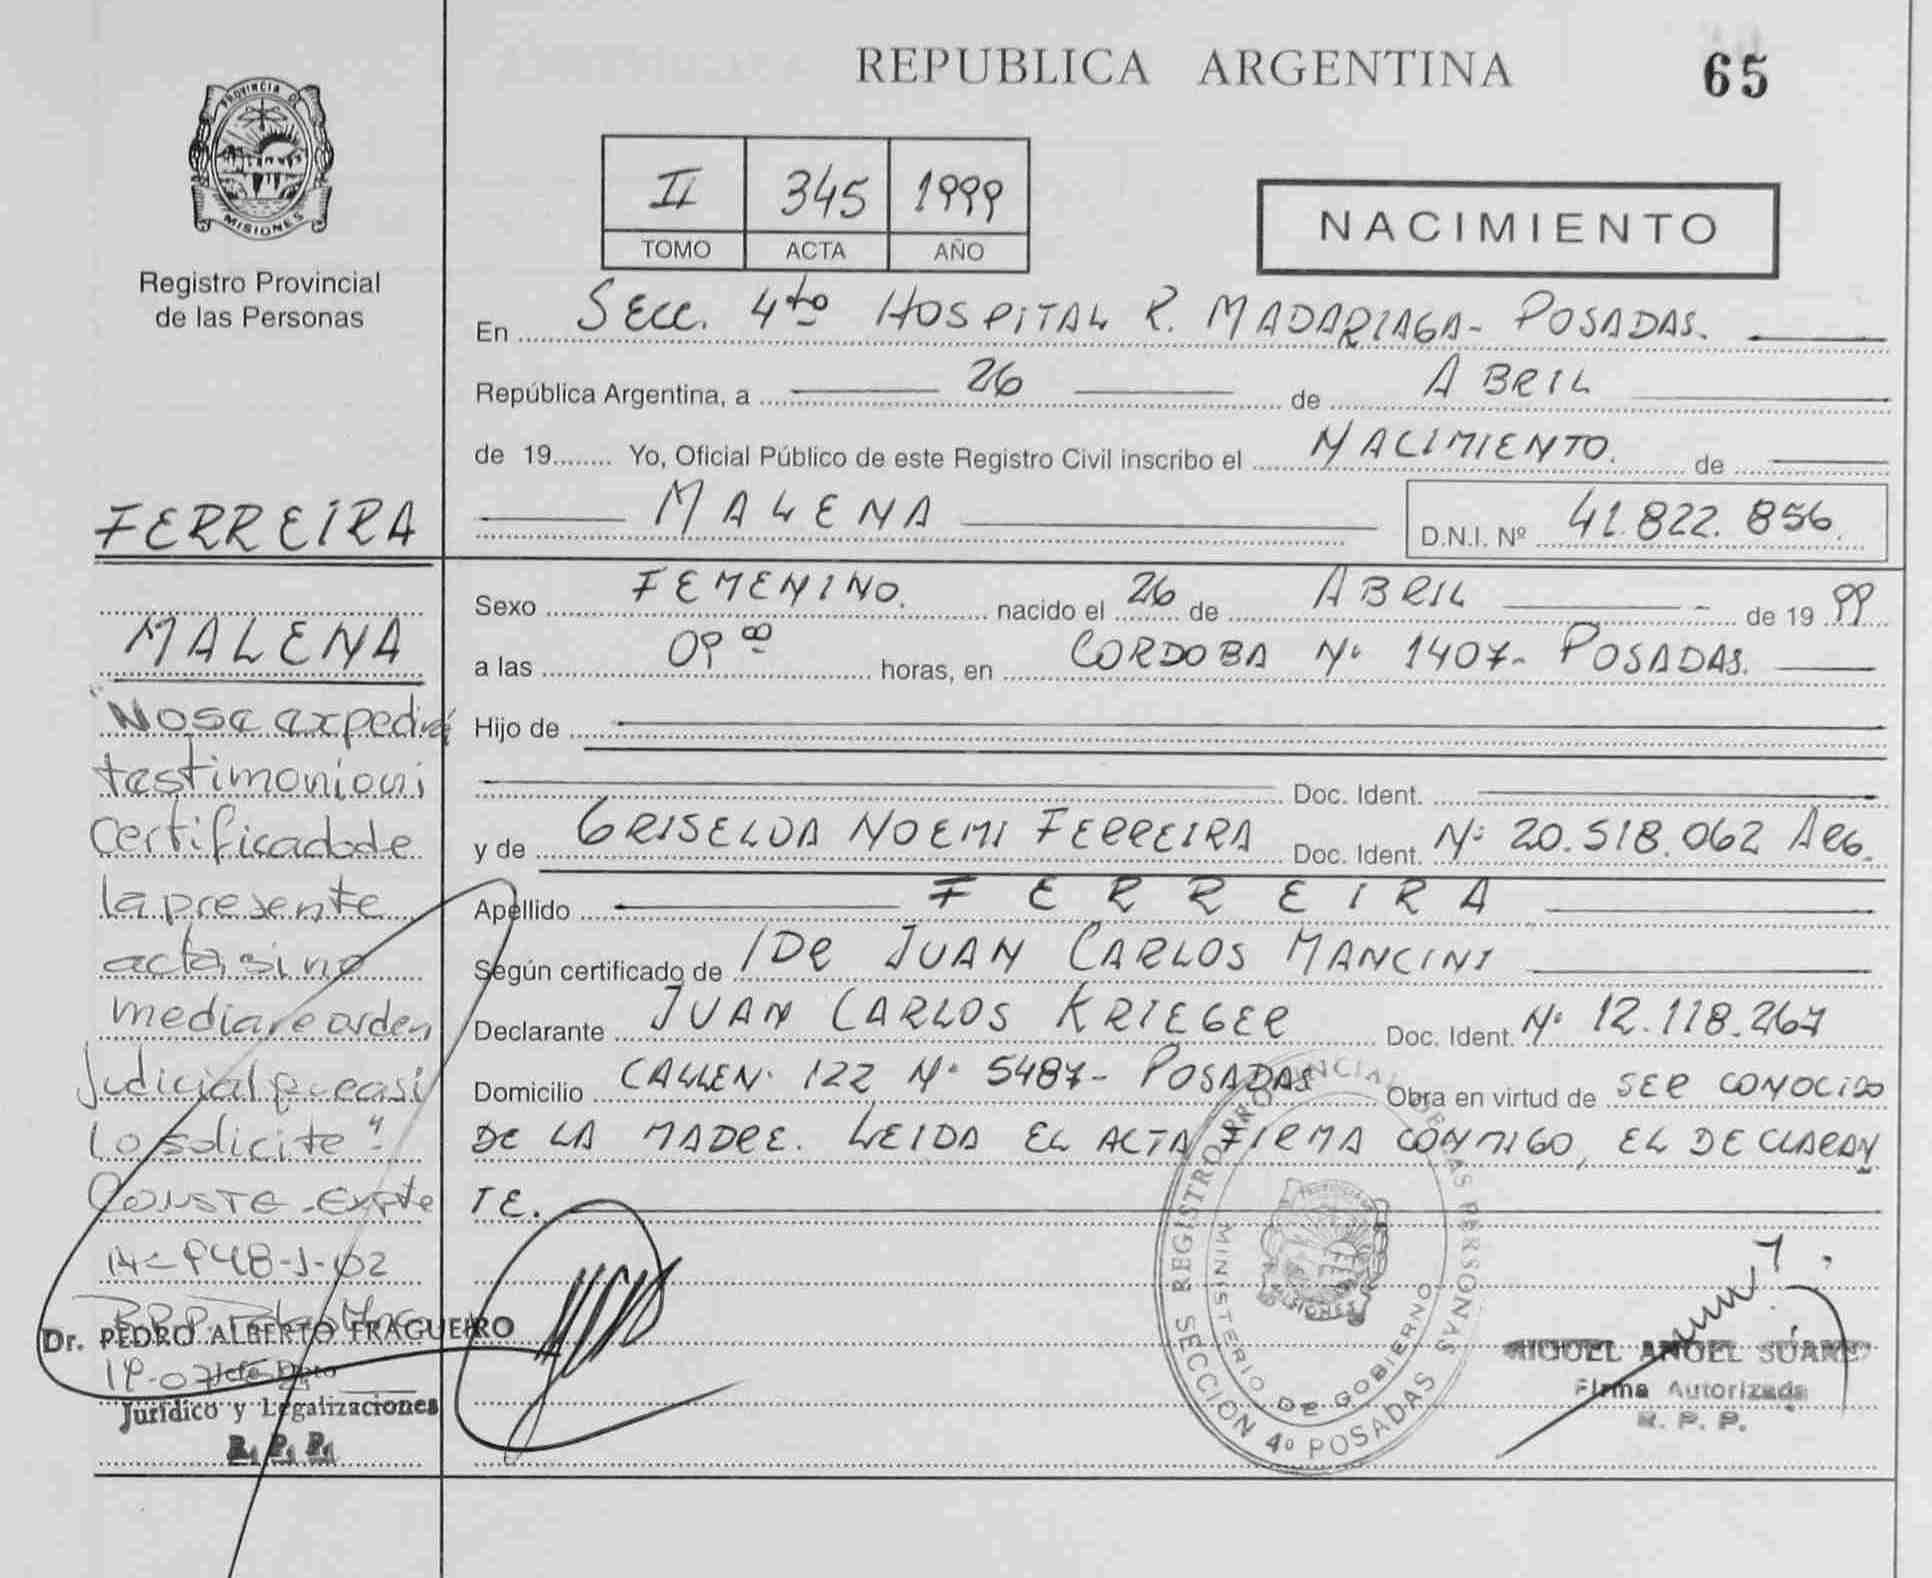 REPUBLICA ARGENTINA
65
PROVINCIA DE
MISIONES
Registro Provincial
de las Personas
II 345 1999
TOMO ACTA AÑO
NACIMIENTO
En SECC. 4to HOSPITAL R. MADARIAGA- POSADAS.
República Argentina, a 26 de ABRIL
de 19........ Yo, Oficial Público de este Registro Civil inscribo el NACIMIENTO. de
MALENA
D.N.I. Nº 41.822.856.
FERREIRA
MALENA
"No se expedirá
testimonio ni
certificado de
la presente
acta, si no
mediare orden
Judicial que asi
lo solicite".
CONSTE-Expte
948-J-02
Dr. PEDRO ALBERTO FRAGUEIRO
Jefe Dpto
Jurídico y Legalizaciones
R. P. P.
Sexo FEMENINO. nacido el 26 de ABRIL de 19 99
a las 09 00 horas, en CORDOBA Nº 1407- POSADAS.
Hijo de
Doc. Ident.
y de GRISELDA NOEMI FERREIRA Doc. Ident. Nº 20.518.062 ARG.
Apellido FERREIRA
Según certificado de /DR JUAN CARLOS MANCINI
Declarante JUAN CARLOS KRIEGER Doc. Ident. Nº 12.118.267
Domicilio CALLE Nº 122 Nº 5487- POSADAS Obra en virtud de SER CONOCIDO
DE LA MADRE. LEIDA EL ACTA FIRMA CONMIGO, EL DECLARAN
TE.
REGISTRO PROVINCIAL DE LAS PERSONAS
MINISTERIO DE GOBIERNO
MISIONES
SECCION 4º POSADAS
MIGUEL ANGEL SUAREZ
Firma Autorizada
R. P. P.